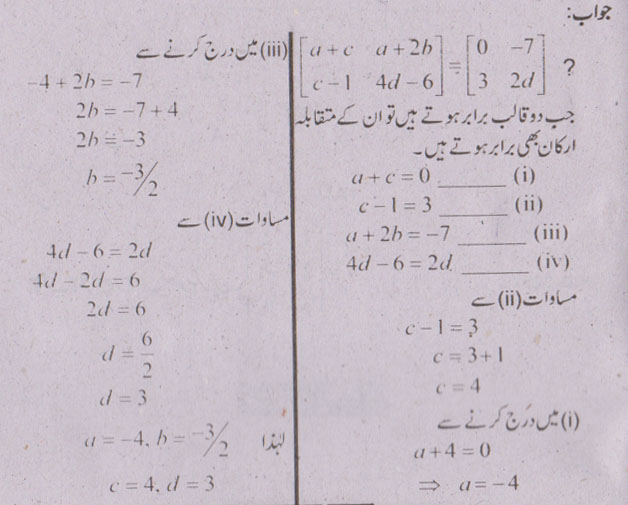 جواب:
[a + c   a + 2b] = [0   −7] ?
[c − 1   4d − 6]   [3   2d]
جب دو قالب برابر ہوتے ہیں تو ان کے متقابلہ
ارکان بھی برابر ہوتے ہیں۔
a + c = 0 ______ (i)
c − 1 = 3 ______ (ii)
a + 2b = −7 ______ (iii)
4d − 6 = 2d ______ (iv)
مساوات (ii) سے
c − 1 = 3
c = 3 + 1
c = 4
(i) میں درج کرنے سے
a + 4 = 0
⇒ a = −4
(iii) میں درج کرنے سے
−4 + 2b = −7
2b = −7 + 4
2b = −3
b = −3/2
مساوات (iv) سے
4d − 6 = 2d
4d − 2d = 6
2d = 6
d = 6/2
d = 3
لہٰذا a = −4, b = −3/2
c = 4, d = 3